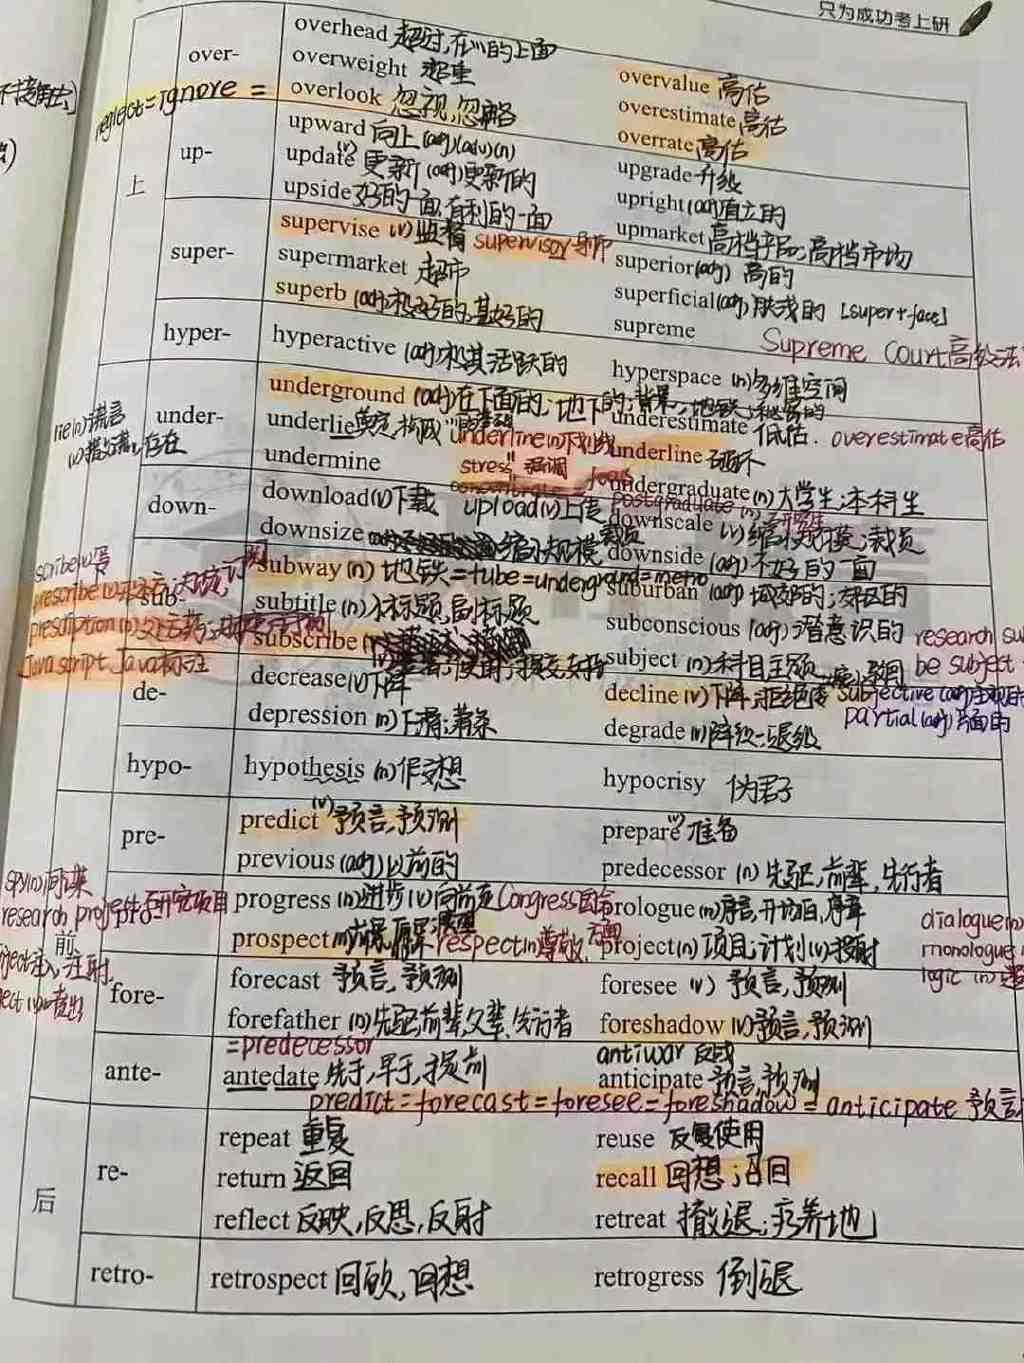 只为成功考上研
over-
overhead 超过,在…的上面
overweight 超重
overvalue 高估
neglect=ignore = overlook 忽视,忽略
overestimate 高估
overrate 高估
上
up-
upward 向上 (adj)(adv)(n)
update (v) 更新 (n)更新的
upgrade 升级
upside 好的一面,有利的一面
upright (adj)直立的
upmarket 高档产品;高档市场
super-
supervise (v) 监督 supervisor 导师
superior(adj) 高的
supermarket 超市
superficial(adj) 肤浅的 [super+face]
superb (adj)极好的,甚好的
supreme
Supreme Court高级法
hyper-
hyperactive (adj)极其活跃的
hyperspace (n)多维空间
under-
underground (adj)在下面的;地下的;
lie(n)谎言
underestimate 低估. overestimate高估
underlie
underline(n)下划线
underline 破坏
undermine
stress" 强调
undergraduate(n)大学生;本科生
postgraduate (n)
down-
download(v)下载 upload(v)上传
downscale (v)缩小规模;裁员
downsize 缩小规模 裁员
downside (adj)不好的一面
scribe(v)写
sub-
subway (n) 地铁=tube=underground=metro
suburban (adj)城郊的;郊区的
subtitle (n)小标题,副标题
subconscious (adj)潜意识的
prescription(n)处方药;
subscribe
subject (n)科目主题
research su
be subject
Java script Java标注
de-
decrease(v)下降
decline (v)下降;拒绝
subjective (adj)主观的
depression (n)下滑;萧条
degrade (v)降级;退级
partial(adj)片面的
hypo-
hypothesis (n)假设想
hypocrisy 伪君子
前
pre-
predict (v) 预言,预测
prepare (v) 准备
previous (adj)以前的
predecessor (n) 先驱,前辈,先行者
spy(n)间谍
research project 研究项目
pro-
progress (n)进步(v)向前进 Congress国会
prologue(n)序言,开场白,序章
dialogue(n)
prospect
respect(n)尊敬,方面
project(n)项目;计划(v)投射
monologue
logic (n)
fore-
forecast 预言,预测
foresee (v) 预言,预测
forefather (n)先驱,前辈,父辈,先行者
foreshadow (v)预言,预测
=predecessor
antiwar 反战
ante-
antedate 先于,早于,提前
anticipate 预言,预测
predict=forecast=foresee=foreshadow=anticipate 预言
后
re-
repeat 重复
reuse 反复使用
return 返回
recall 回想;召回
reflect 反映,反思,反射
retreat 撤退;疗养地
retro-
retrospect 回顾,回想
retrogress 倒退